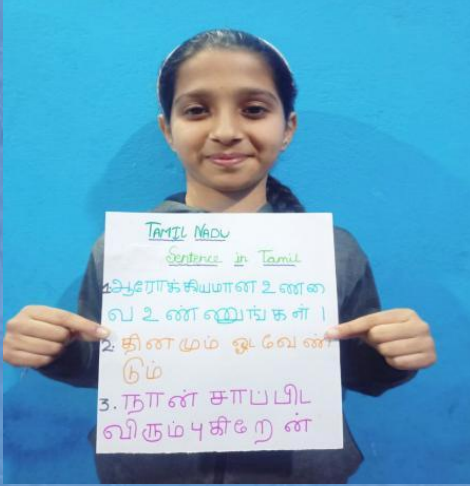 TAMIL NADU
Sentence in Tamil
1. ஆரோக்கியமான உணவை
வ உண்ணுங்கள் |
2. தினமும் ஓடவேண்
டும்
3. நான் சாப்பிட
விரும்புகிறேன்